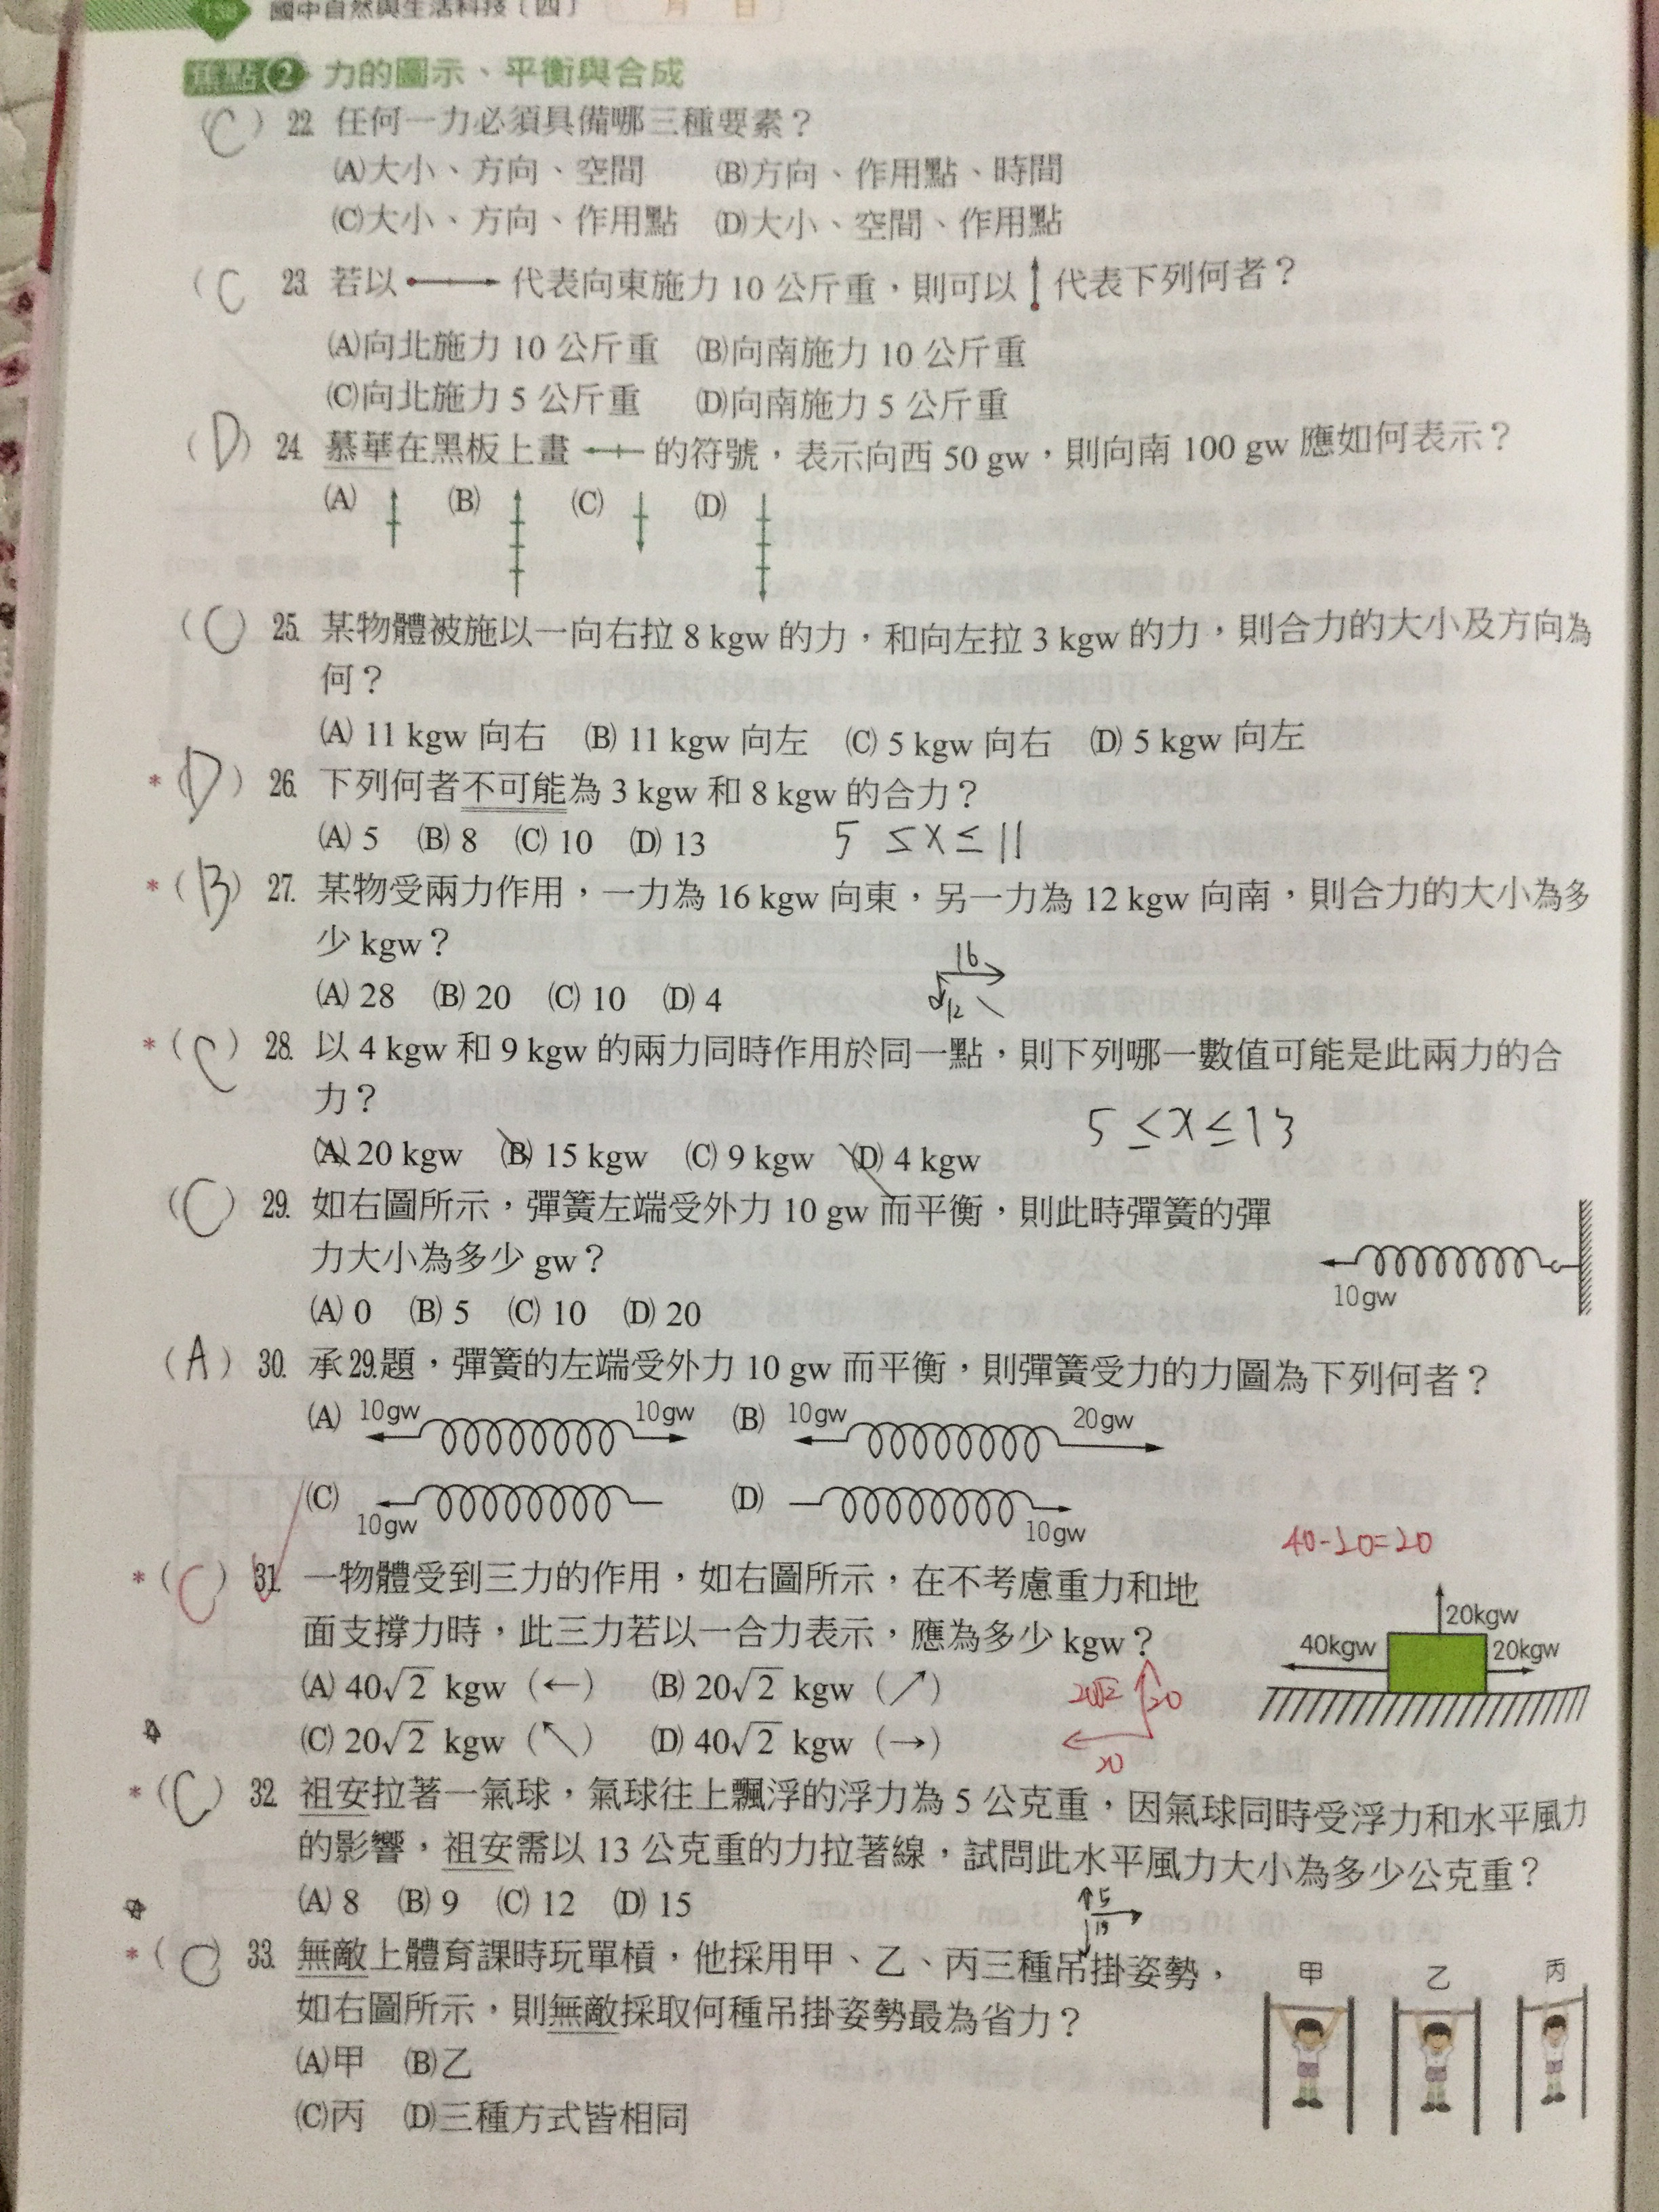 國中自然與生活科技〔四〕 月 日
焦點2 力的圖示、平衡與合成
(C) 22. 任何一力必須具備哪三種要素？
(A)大小、方向、空間 (B)方向、作用點、時間
(C)大小、方向、作用點 (D)大小、空間、作用點
(C 23. 若以 代表向東施力 10 公斤重，則可以 代表下列何者？
(A)向北施力 10 公斤重 (B)向南施力 10 公斤重
(C)向北施力 5 公斤重 (D)向南施力 5 公斤重
(D) 24. 慕華在黑板上畫 的符號，表示向西 50 gw，則向南 100 gw 應如何表示？
(A) (B) (C) (D)
(C) 25. 某物體被施以一向右拉 8 kgw 的力，和向左拉 3 kgw 的力，則合力的大小及方向為
何？
(A) 11 kgw 向右 (B) 11 kgw 向左 (C) 5 kgw 向右 (D) 5 kgw 向左
*(D) 26. 下列何者不可能為 3 kgw 和 8 kgw 的合力？
(A) 5 (B) 8 (C) 10 (D) 13 5 ≤ x ≤ 11
*(B) 27. 某物受兩力作用，一力為 16 kgw 向東，另一力為 12 kgw 向南，則合力的大小為多
少 kgw？
16
12
(A) 28 (B) 20 (C) 10 (D) 4
*(C) 28. 以 4 kgw 和 9 kgw 的兩力同時作用於同一點，則下列哪一數值可能是此兩力的合
力？
5 ≤ x ≤ 13
(A) 20 kgw (B) 15 kgw (C) 9 kgw (D) 4 kgw
(C) 29. 如右圖所示，彈簧左端受外力 10 gw 而平衡，則此時彈簧的彈
力大小為多少 gw？
10gw
(A) 0 (B) 5 (C) 10 (D) 20
(A) 30. 承29.題，彈簧的左端受外力 10 gw 而平衡，則彈簧受力的力圖為下列何者？
(A) 10gw 10gw (B) 10gw 20gw
(C) 10gw (D) 10gw
40-20=20
*(C) 31. 一物體受到三力的作用，如右圖所示，在不考慮重力和地
面支撐力時，此三力若以一合力表示，應為多少 kgw？
20kgw
40kgw 20kgw
(A) 40√2 kgw（←） (B) 20√2 kgw（↗）
20√2 20
20
(C) 20√2 kgw（↖） (D) 40√2 kgw（→）
*(C) 32. 祖安拉著一氣球，氣球往上飄浮的浮力為 5 公克重，因氣球同時受浮力和水平風力
的影響，祖安需以 13 公克重的力拉著線，試問此水平風力大小為多少公克重？
(A) 8 (B) 9 (C) 12 (D) 15
↑5
13
*(C) 33. 無敵上體育課時玩單槓，他採用甲、乙、丙三種吊掛姿勢，
如右圖所示，則無敵採取何種吊掛姿勢最為省力？
甲 乙 丙
(A)甲 (B)乙
(C)丙 (D)三種方式皆相同